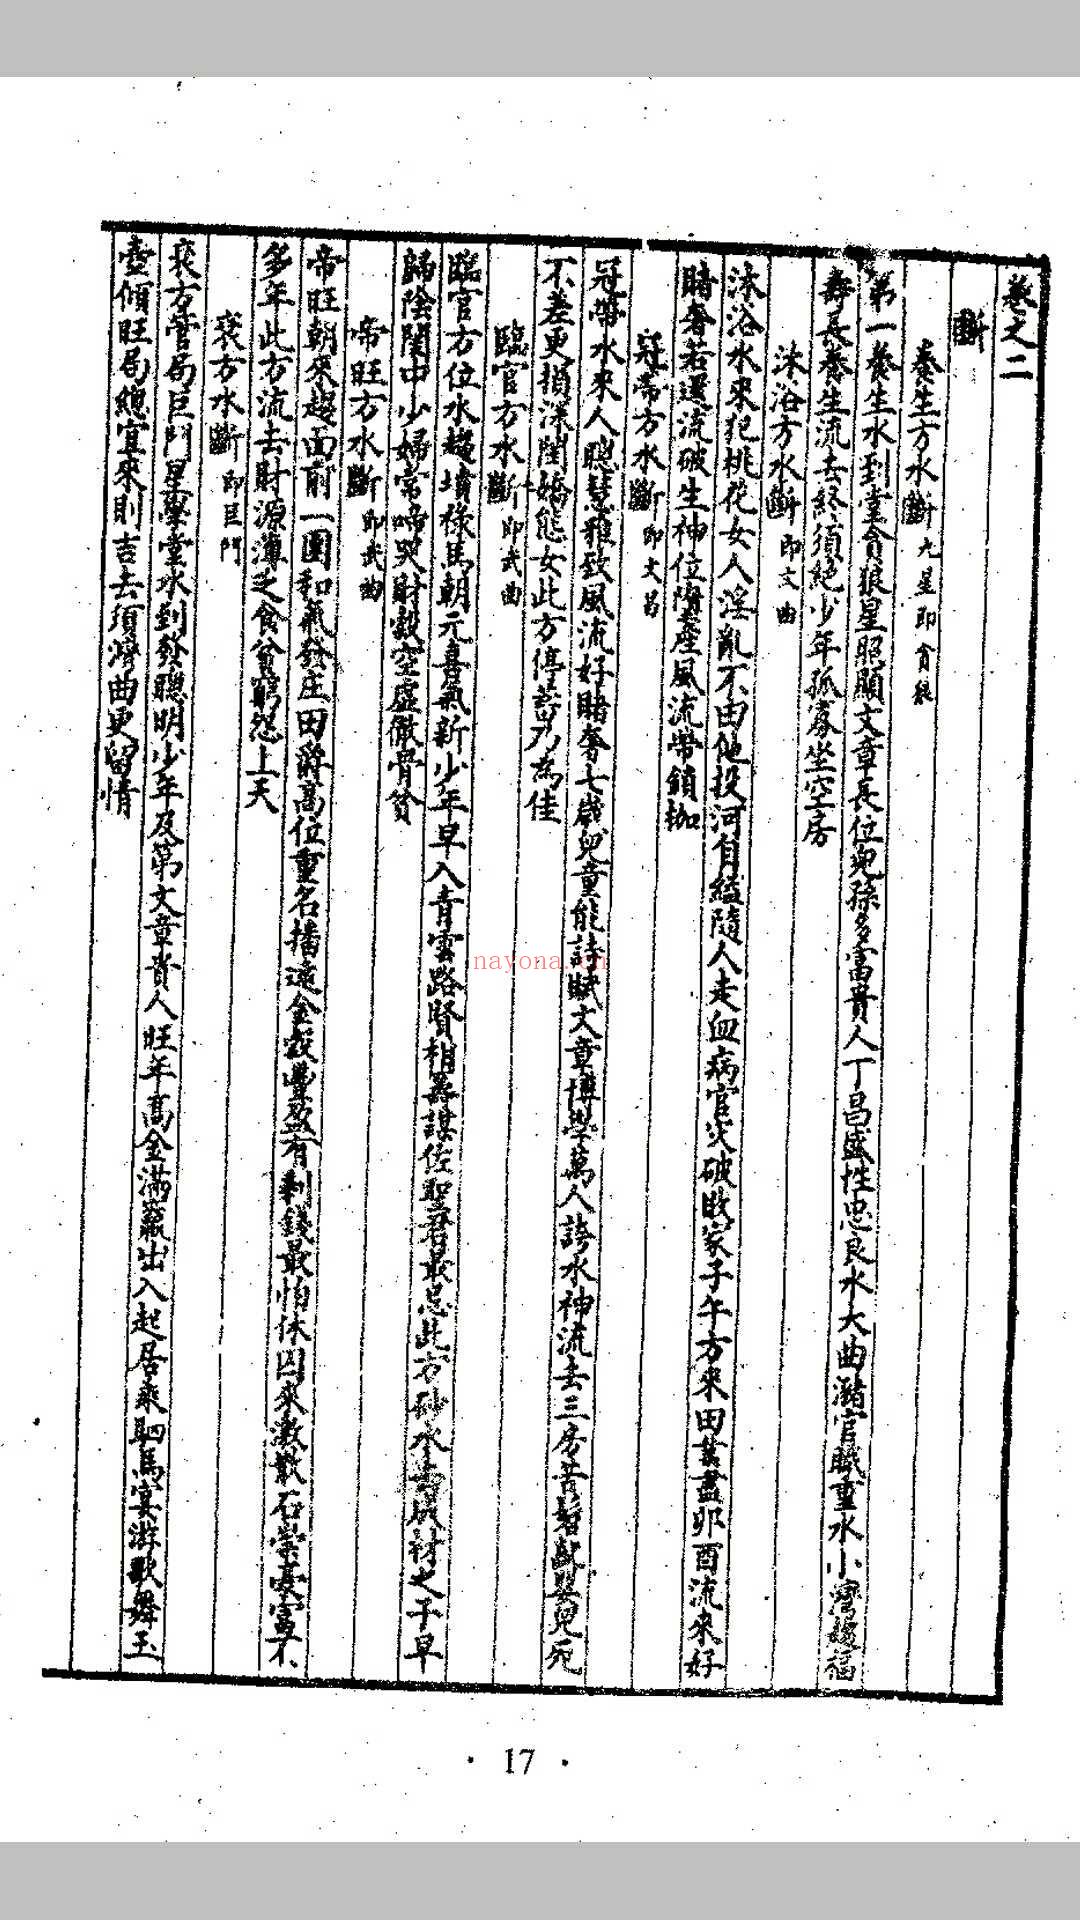 卷之二
斷
養生方水斷 九星即貪狼
第一養生水到堂貪狼星照顯文章長位兒孫多富貴人丁昌盛性忠良水大曲瀦官職重水小灣趨福
壽長養生流去終須絕少年孤寡坐空房
沐浴方水斷 即文曲
沐浴水來犯桃花女人淫亂不由他投河自縊隨人走血病官灾破敗家子午方來田業盡卯酉流來好
賭奢若還流破生神位墮產風流帶鎖枷
冠帶方水斷 即文昌
冠帶水來人聰慧雅致風流好賭奢七歲兒童能詩賦文章博學萬人誇水神流去三房苦髫齡嬰兒死
不差更損深閨嬌態女此方停蓄乃為佳
臨官方水斷 即武曲
臨官方位水趨墳祿馬朝元喜氣新少年早入青雲路賢相籌謀佐聖君最忌此方砂水 成材之子早
歸陰閨中少婦常啼哭財穀空虛徹骨貧
帝旺方水斷 即武曲
帝旺朝來趨面前一團和氣發庄田爵高位重名播遠金穀豐盈有剩錢最怕休囚來激散石崇豪富不
多年此方流去財源薄乏食貧窮怨上天
衰方水斷 即巨門
衰方管局巨門星擎堂水到發聰明少年及第文章貴人旺年高金滿籯出入起居乘駟馬宴游歌舞玉
壺傾旺局總宜來則吉去須濟曲更留情
nayona.cn
· 17 ·